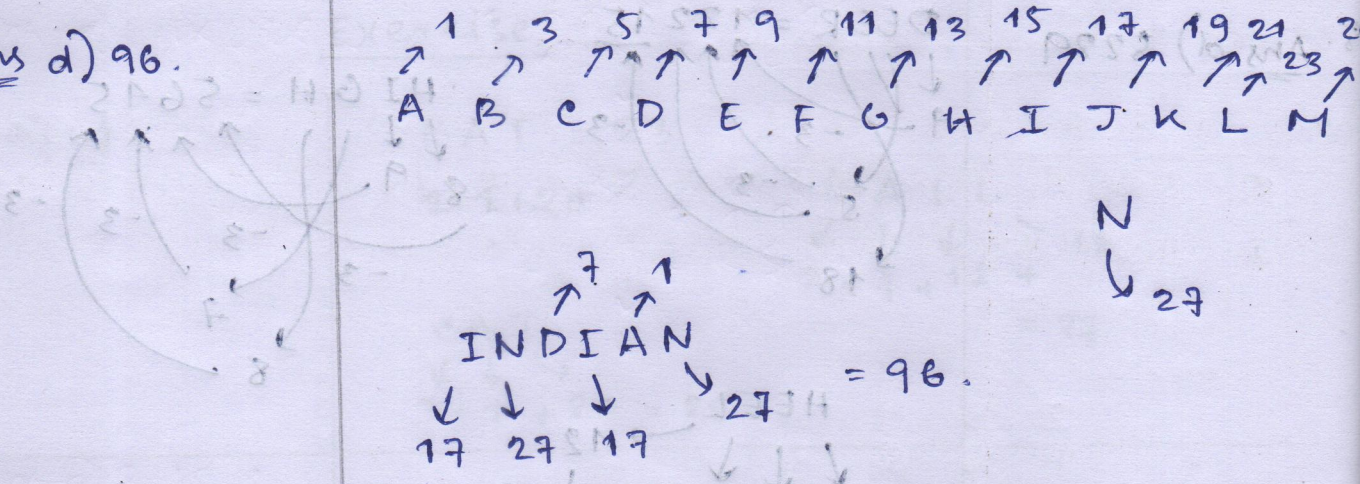 d) 96.
1 3 5 7 9 11 13 15 17 19 21
23
A B C D E F G H I J K L M
N
27
7 1
INDIAN
= 96.
27
17 27 17